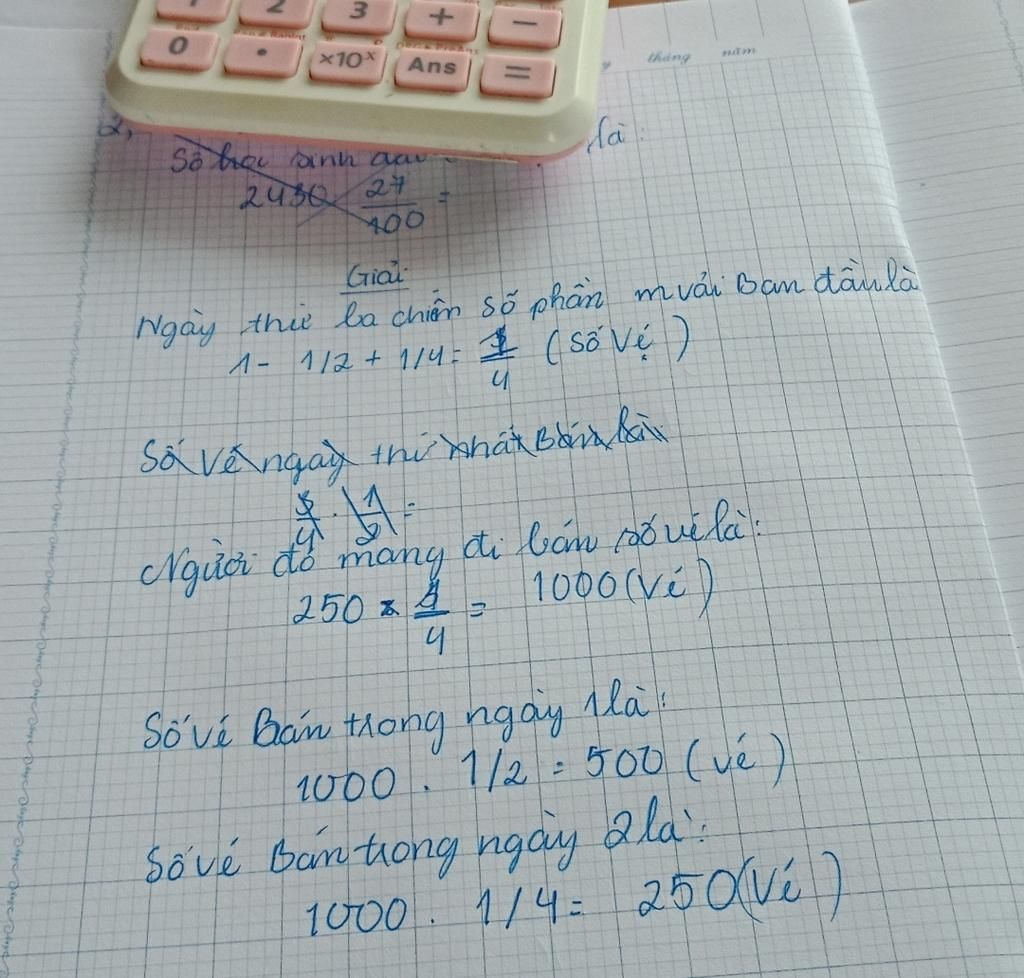 1 2 3 + −
0 • ×10ˣ Ans =
tháng năm
2,
Số học sinh là:
2430 27/100 =
Giải:
Ngày thứ ba chiếm số phần m vải Ban đầu là
1 - 1/2 + 1/4 = 1/4 (số Vé)
Số Vé ngày thứ nhất Bán là
1/2 =
Người đó mang đi bán số vé là:
250 × 4/4 = 1000 (Vé)
Số vé Bán trong ngày 1 là:
1000 . 1/2 = 500 (vé)
Số vé Bán trong ngày 2 là:
1000 . 1/4 = 250 (Vé)